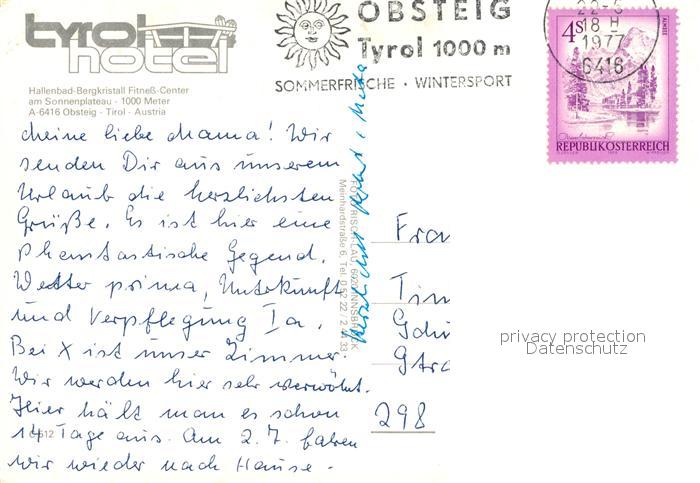 tyrol
hotel
Hallenbad-Bergkristall Fitneß-Center
am Sonnenplateau - 1000 Meter
A-6416 Obsteig - Tirol - Austria
OBSTEIG
Tyrol 1000 m
SOMMERFRISCHE · WINTERSPORT
18 H
1977
6416
4S
ALMSEE
REPUBLIK ÖSTERREICH
Meine liebe Mama! Wir
senden Dir aus unserem
Urlaub die herzlichsten
Grüße. Es ist hier eine
phantastische Gegend.
Wetter prima, Unterkunft
und Verpflegung Ia.
Bei X ist unser Zimmer.
Wir werden hier sehr verwöhnt.
Hier hält man es schon
14 Tage aus. Am 2.7. fahren
wir wieder nach Hause.
INNSBRUCK
Meinhardstraße 6, Tel. 0 52 22 / 33
Frau
298
privacy protection
Datenschutz